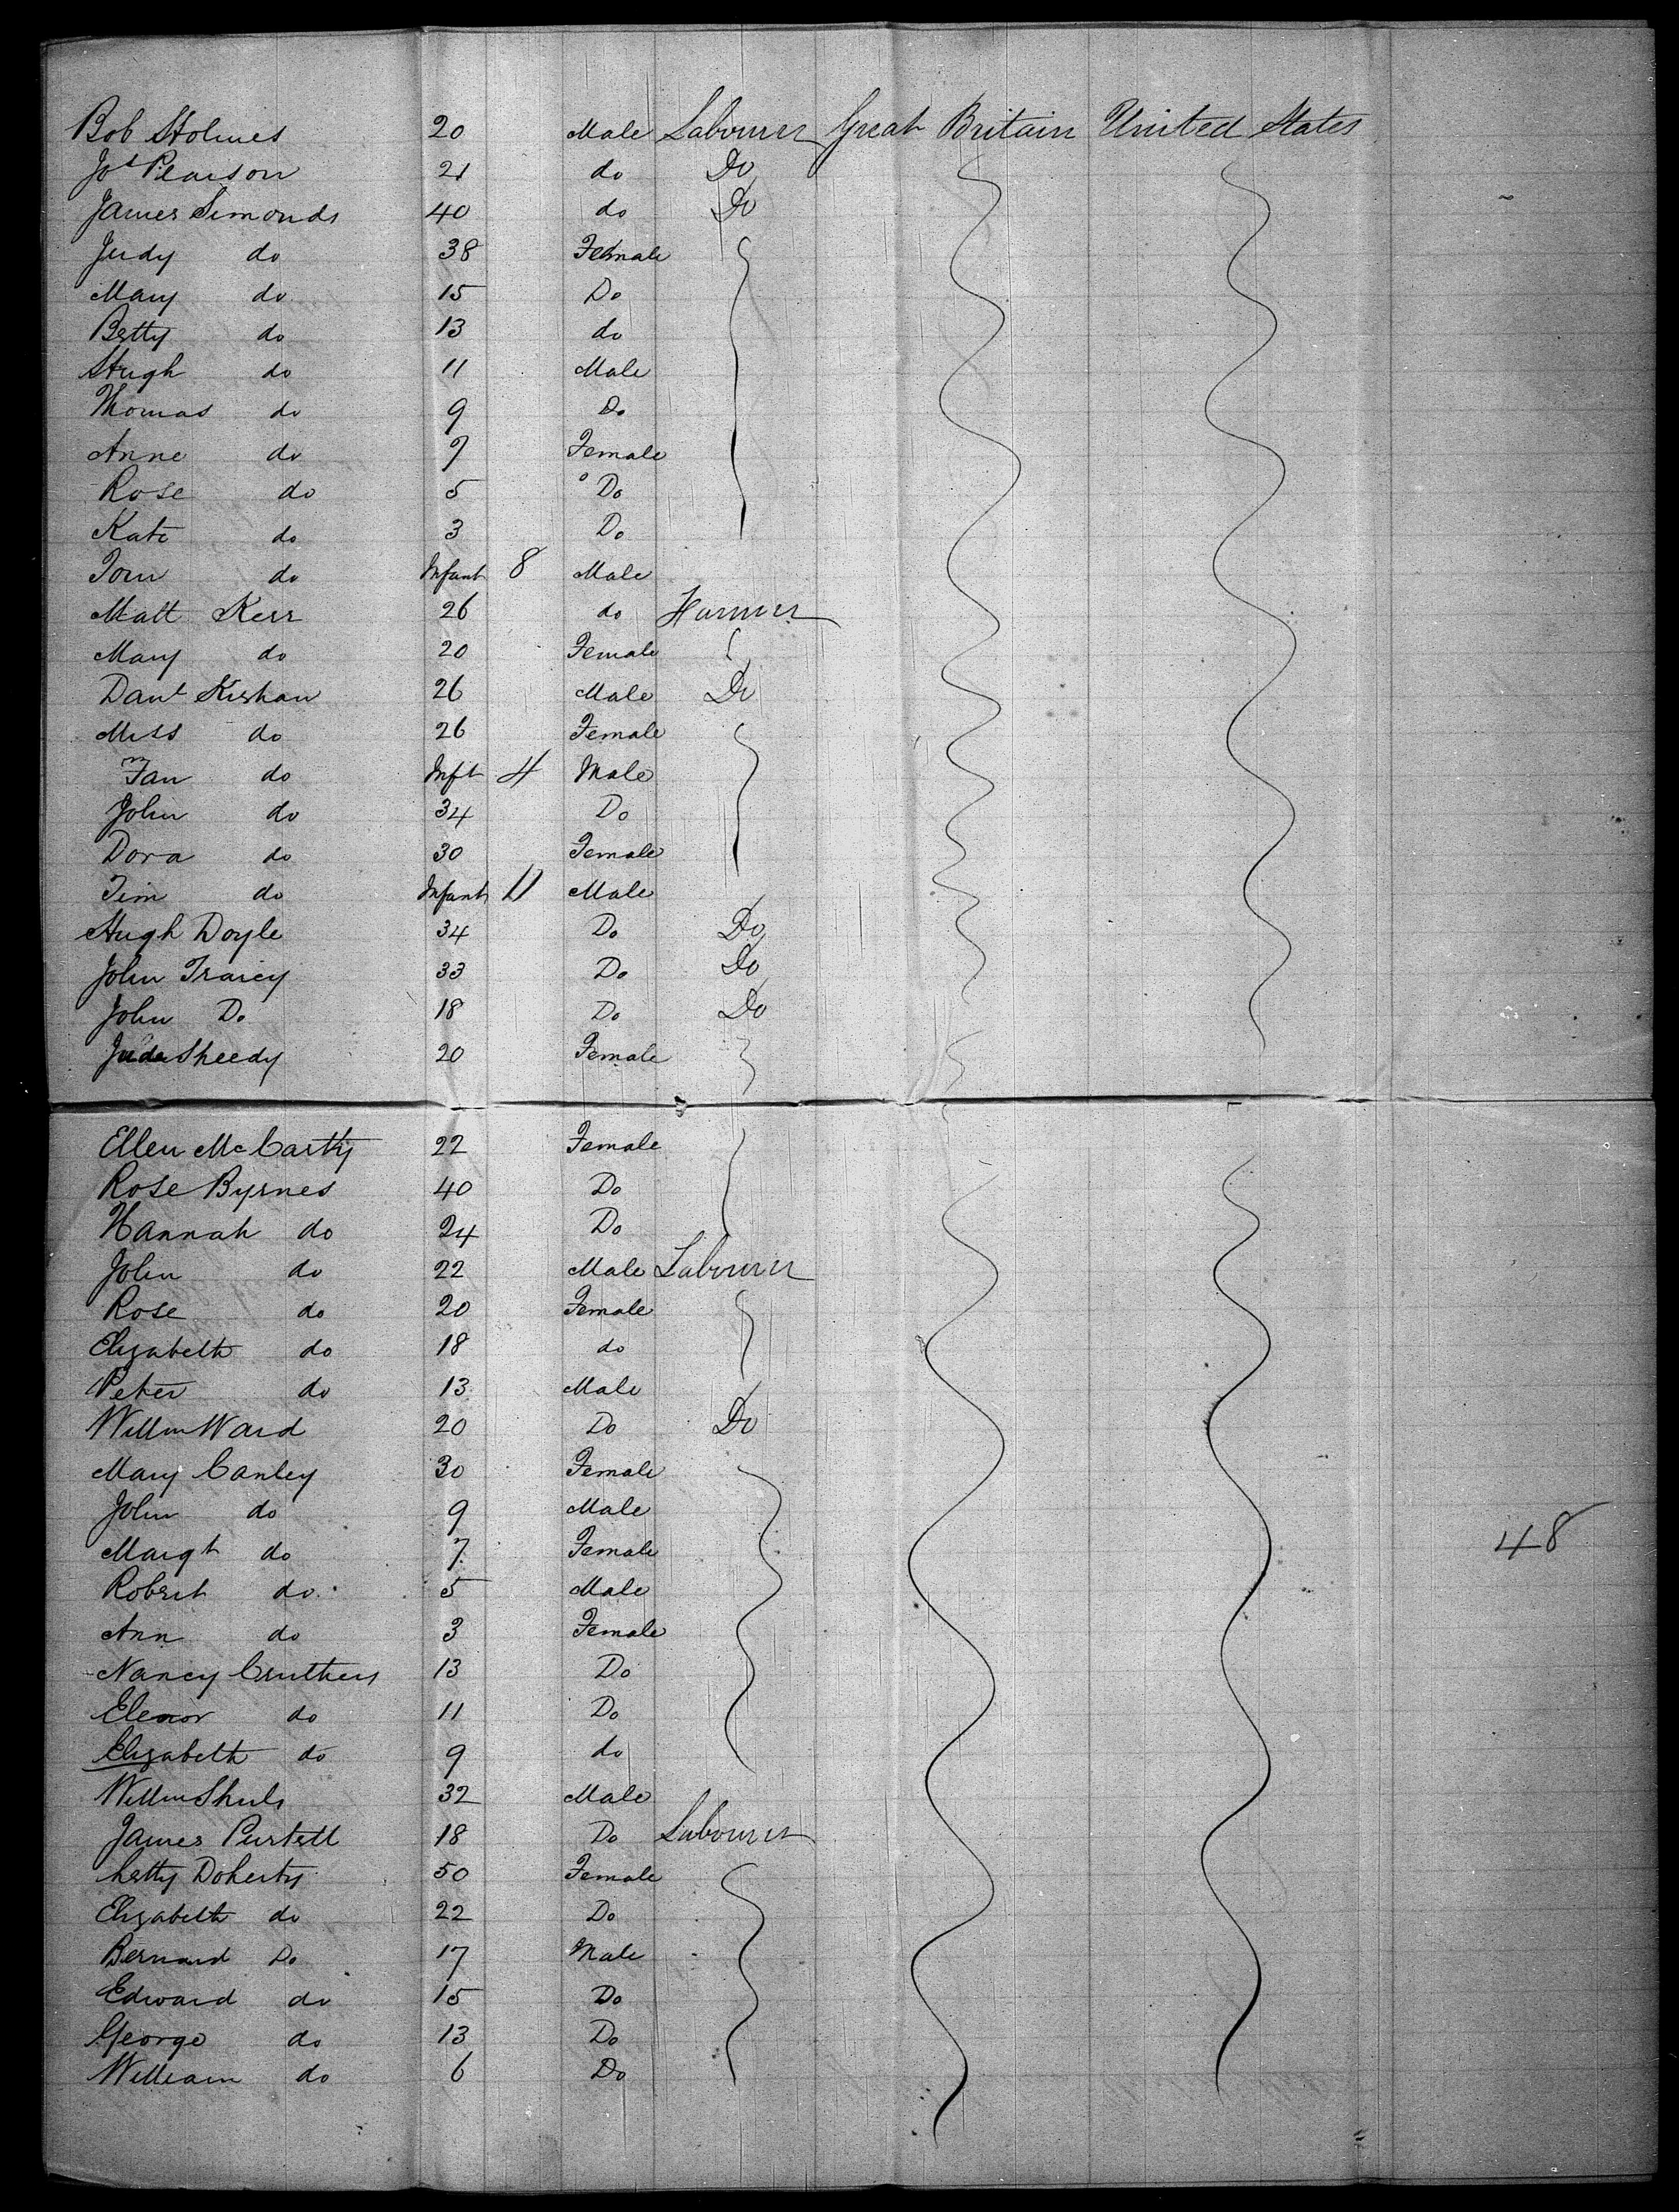 Bob Holmes 20 Male Labourer Great Britain United States
Jos Pearson 21 do Do
James Simonds 40 do Do
Judy do 38 Female
Mary do 15 Do
Betty do 13 do
Hugh do 11 Male
Thomas do 9 Do
Anne do 7 Female
Rose do 5 Do
Kate do 3 Do
Tom do Infant 8 Male
Matt Kerr 26 do Farmer
Mary do 20 Female
Danl Kirshaw 26 Male Do
Miss do 26 Female
do Inft 4 Male
John do 34 Do
Dora do 30 Female
Tim do Infant 11 Male
Hugh Doyle 34 Do Do
John Traicy 33 Do Do
John Do 18 Do Do
Sheedy 20 Female
Ellen McCarthy 22 Female
Rose Byrnes 40 Do
Hannah do 24 Do
John do 22 Male Labourer
Rose do 20 Female
Elizabeth do 18 do
Peter do 13 Male
Willm Ward 20 Do Do
Mary Canley 30 Female
John do 9 Male
Margt do 7 Female
48
Robert do 5 Male
Ann do 3 Female
Nancy Cruthers 13 Do
Elenor do 11 Do
Elizabeth do 9 do
Willm 32 Male
James Purtell 18 Do Labourer
Doherty 50 Female
Elizabeth do 22 Do
Bernard Do 17 Male
Edward do 15 Do
George do 13 Do
William do 6 Do